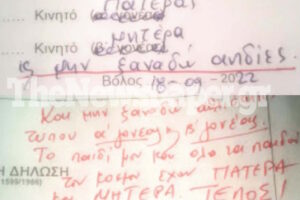 ΠΑΤΕΡΑΣ
Κινητό
ΜΗΤΕΡΑ
Κινητό
μην ξαναδώ αηδίες.
Βόλος 18-09-2022
TheNewspaper.gr
Και μην ξαναδώ
τύπου α' γονέας, β' γονέας.
Το παιδί μου και όλα τα παιδιά
Η ΔΗΛΩΣΗ
1599/1986)
του κόσμου έχουν ΠΑΤΕΡΑ
και ΜΗΤΕΡΑ. ΤΕΛΟΣ!